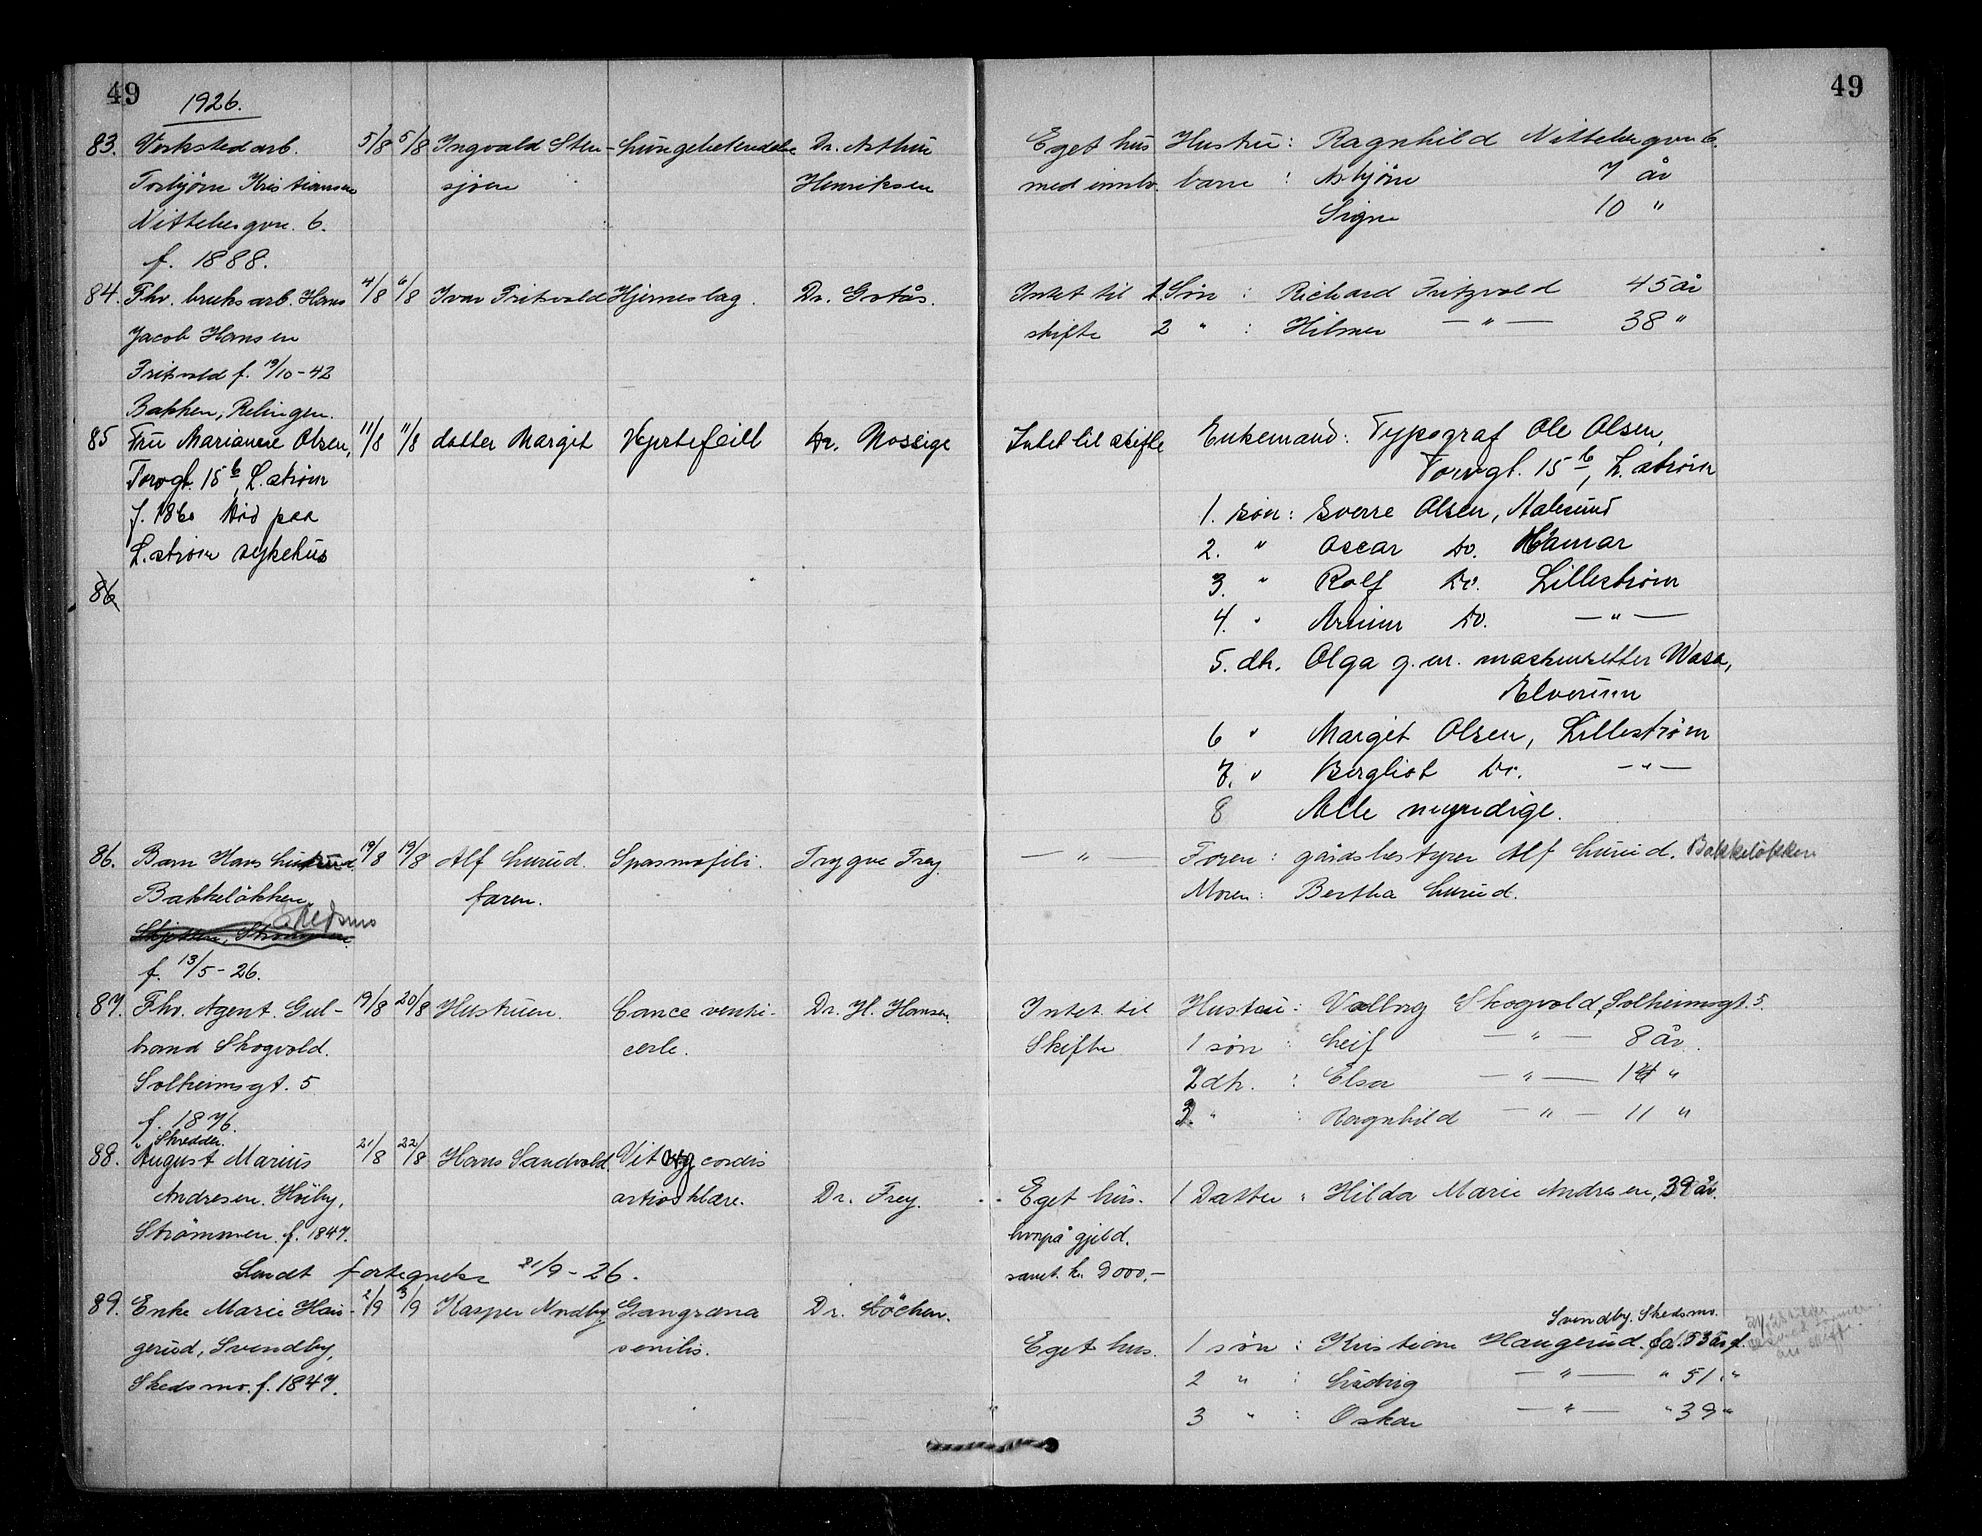 49
1926.
49
83. Verkstedarb. 5/8 5/8 Ingvald Sten- Lungebetendelse Dr. Arthur Eget hus Hustru: Ragnhild Nittebergvn 6.
Torbjørn Kristiansen sjøen Henriksen med innbo barn : Asbjörn 7 år
Nittebergvn. 6. Signe 10 "
f. 1888.
84. Fhv. bruksarb. Hans 4/8 6/8 Ivar Fritzvold Hjerneslag. Dr. Grtås. Intet til 1. Søn : Richard Fritzvold 45 år
Jacob Hansen skifte 2 " : Hilmer — " — 38 "
Fritzvold f. 19/10-42
Bakken, Relingen.
85 Fru Marianne Olsen, 11/8 11/8 datter Margit Hjertefeill Dr. Mossige Intet til skifte Enkemand: Typograf Ole Olsen,
Torvgt. 15 b, L.strøm Torvgt. 15 b, L.strøm
f. 1860 død paa 1. søn: Sverre Olsen, Aalesund
L.strøm sykehus 2. " Oscar do. Hamar
86 3. " Rolf do. Lillestrøm
4. " Arnun do. — " —
5. dtr. Olga g.m. maskinsetter Wasa,
Elverum
6 " Margit Olsen, Lillestrøm
7. " Bergliot do. — " —
8 Alle myndige.
86. Barn Hans Lurud 19/8 19/8 Alf Lurud Spasmofili. Trygve Frey. — " — Faren: gårdsbestyrer Alf Lurud. Bakkeløkken
Bakkeløkken. faren. Moren: Bertha Lurud.
Skjetten, Strømmen. Skedsmo
f. 13/5-26.
87. Fhv. Agent. Gul- 19/8 20/8 Hustruen. Cance ventri- Dr. Hl. Hansen. Intet til Hustru: Valborg Skogvold, Solheimsgt. 5.
brand Skogvold. cerle. Skifte 1 søn : Leif — " — 8 år.
Solheimsgt. 5 2 dtr. : Elsa — " — 14 "
f. 1876. 3. " : Ragnhild — " — 11 "
Skredder
88. August Marius 21/8 22/8 Hans Sandvold. Vit org cordis
Andresen. Høiby, artrosklære. Dr. Frey. Eget hus. 1 Datter : Hilda Marie Andresen, 39 år.
Strømmen. f. 1847. hvorpå gjeld.
Sendt fortegnelse 21/9-26. saml. kr. 9000,-
89. Enke Marie Hau- 2/9 3/9 Kasper Nordby. Gangræna Dr. Løchen. Svendby. Skedsmo.
gerud, Svendby, senilis. Eget hus. 1 søn : Kristian Haugerud. fød. 53 år g.
Skedsmo. f. 1847. 2 " : Ludvig — " — " 51 "
3 " : Oskar — " — " 39 "